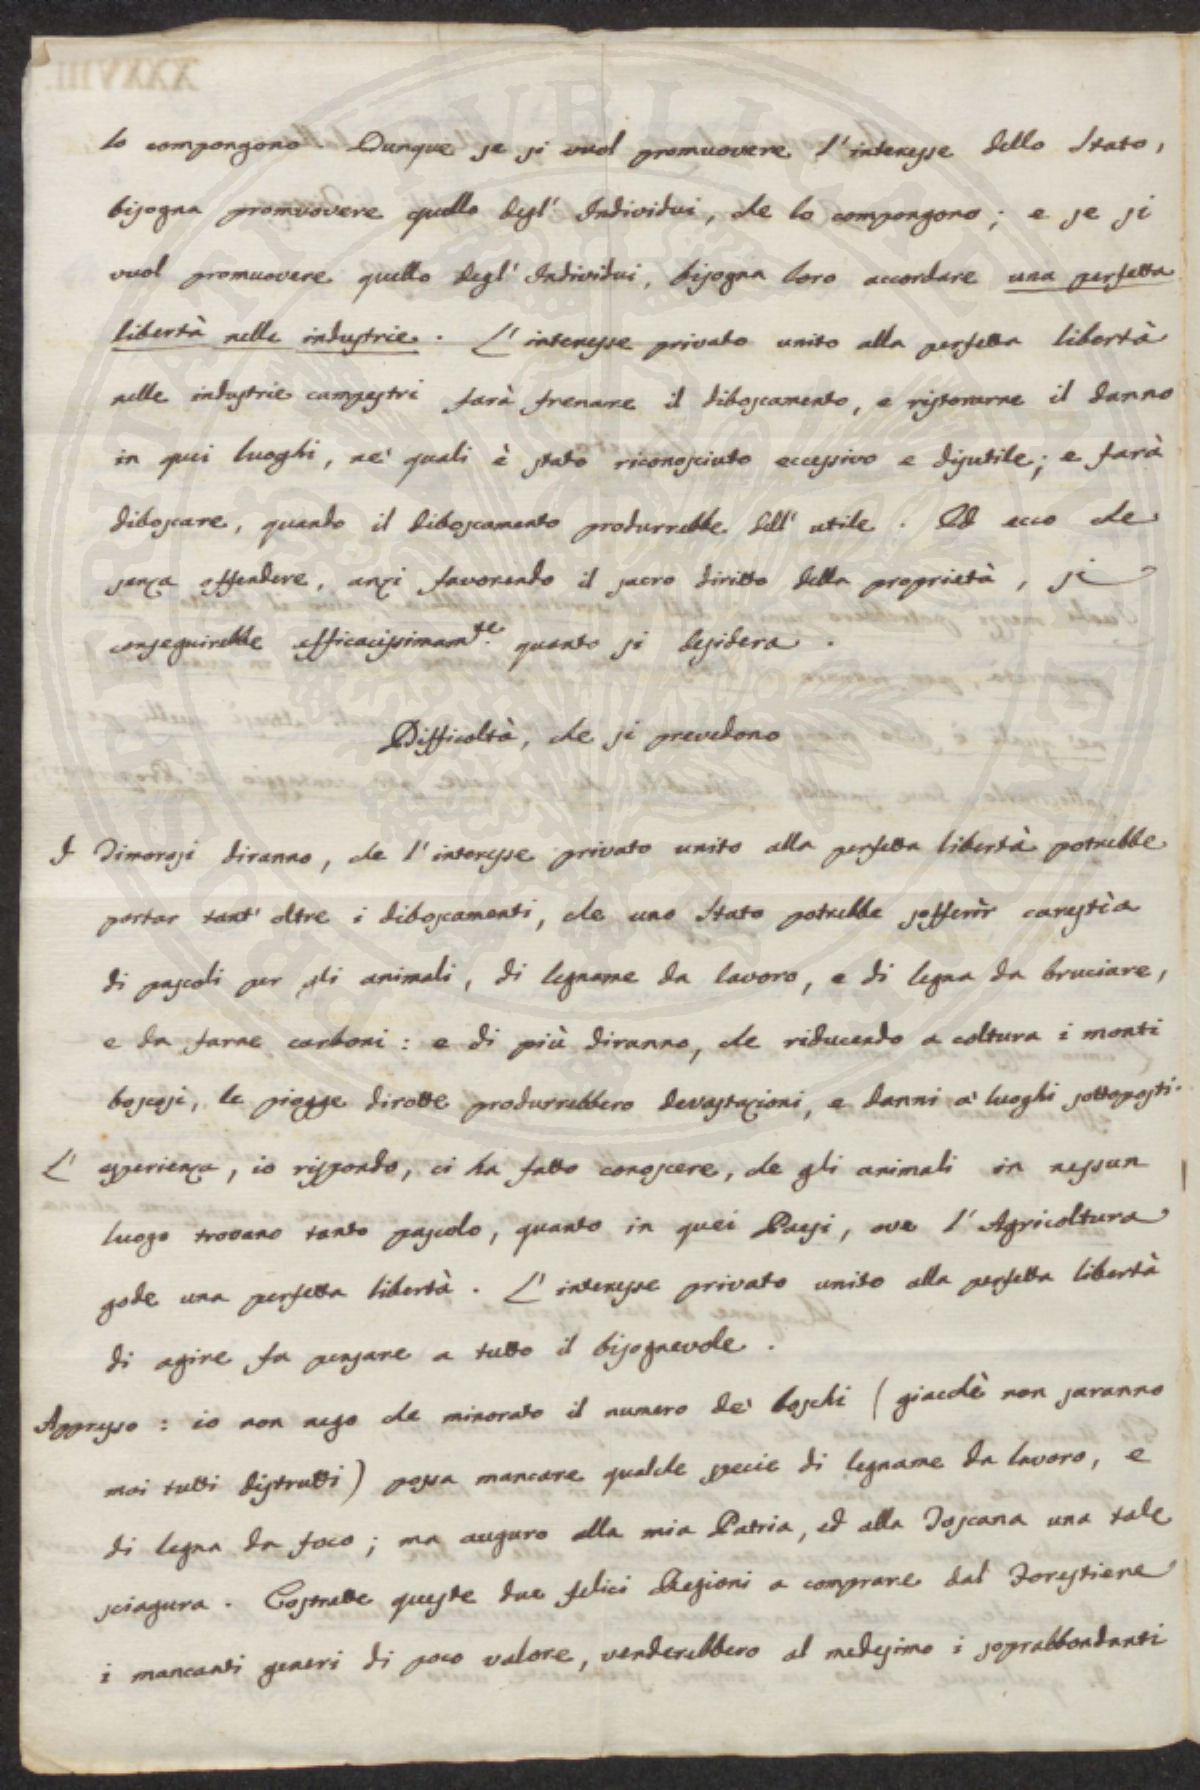 lo compongono. Dunque se si vuol promuovere l'interesse dello Stato,
bisogna promuovere quello degl'Individui, che lo compongono; e se si
vuol promuovere quello degl'Individui, bisogna loro accordare una perfetta
libertà nelle industrie. L'interesse privato unito alla perfetta libertà
nelle industrie campestri farà frenare il diboscamento, e ristorarne il danno
in quei luoghi, ne' quali è stato riconosciuto eccessivo e disutile; e farà
diboscare, quando il diboscamento produrrebbe dell'utile. Ed ecco che
senza offendere, anzi favorendo il sacro diritto della proprietà, si
conseguirebbe efficacissimamte. quanto si desidera.
Difficoltà, che si prevedono
I Timorosi diranno, che l'interesse privato unito alla perfetta libertà potrebbe
portar tant'oltre i diboscamenti, che uno Stato potrebbe sofferir carestìa
di pascoli per gli animali, di legname da lavoro, e di legna da bruciare,
e da farne carboni: e di più diranno, che riducendo a coltura i monti
boscosi, le piogge dirotte produrrebbero devastazioni, e danni a' luoghi sottoposti.
L'esperienza, io rispondo, ci ha fatto conoscere, che gli animali in nessun
luogo trovano tanto pascolo, quanto in quei Paesi, ove l'Agricoltura
gode una perfetta libertà. L'interesse privato unito alla perfetta libertà
di agire fa pensare a tutto il bisognevole.
Appresso: io non nego che minorato il numero de' boschi (giacchè non saranno
mai tutti distrutti) possa mancare qualche specie di legname da lavoro, e
di legna da foco; ma auguro alla mia Patria, ed alla Toscana una tale
sciagura. Costrette queste due felici Regioni a comprare dal Forestiere
i mancanti generi di poco valore, venderebbero al medesimo i soprabbondanti